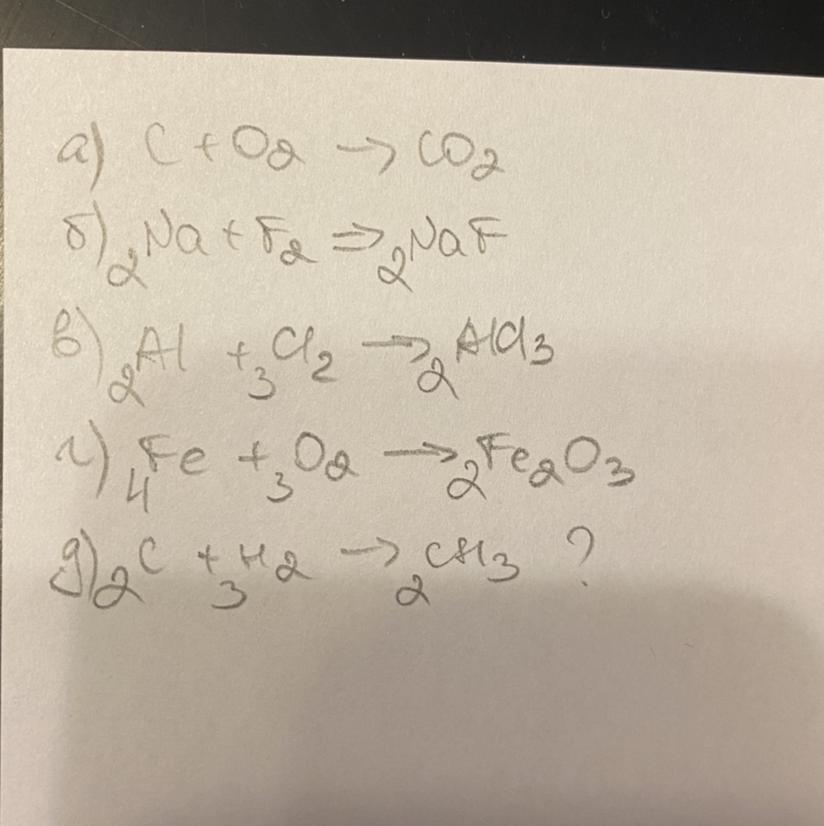 а) C + O2 → CO2
б) 2Na + F2 ⇒ 2NaF
в) 2Al + 3Cl2 → 2AlCl3
г) 4Fe + 3O2 → 2Fe2O3
д) 2C + 3H2 → 2CH3 ?